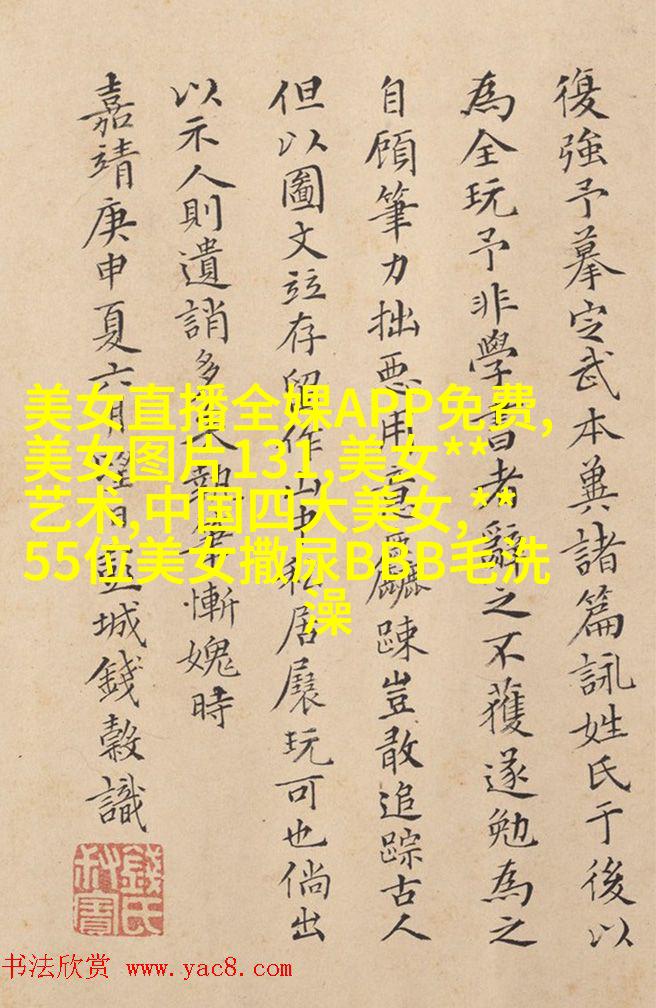 復強予摹定武本兼諸篇詠姓氏于後以
為全玩予非學書者辭之不獲遂勉為之
自顧筆力拙惡用意麤踈豈敢追踪古人
但以圖文竝存留作山中私居展玩可也倘出
以示人則遺誚多矣執筆慚媿時
嘉靖庚申夏六月望日城錢穀識
錢氏叔寶
美女直播全婐APP免费,
美女图片131,美女**
艺术,中国四大美女,**
55位美女撒尿BBB毛洗
澡
书法欣赏 www.yac8.com